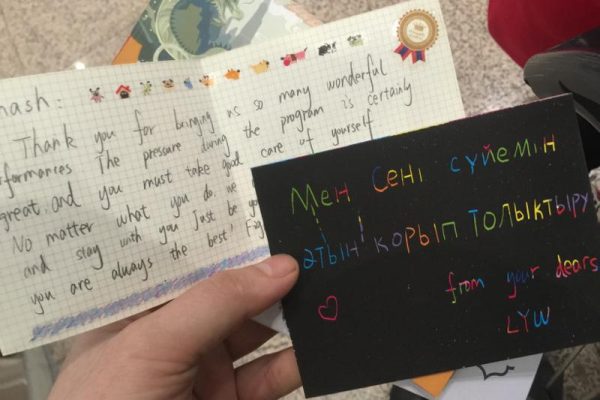 mash :
Thank you for bringing us so many wonderful
rformances The pressure during the program is certainly
great. and you must take good care of yourself
No matter what you do. we
and stay with you Just be yo
you are always the best! Fig
Мен Сені сүйемін
әтын қорып толықтыру
from your dears
LYW